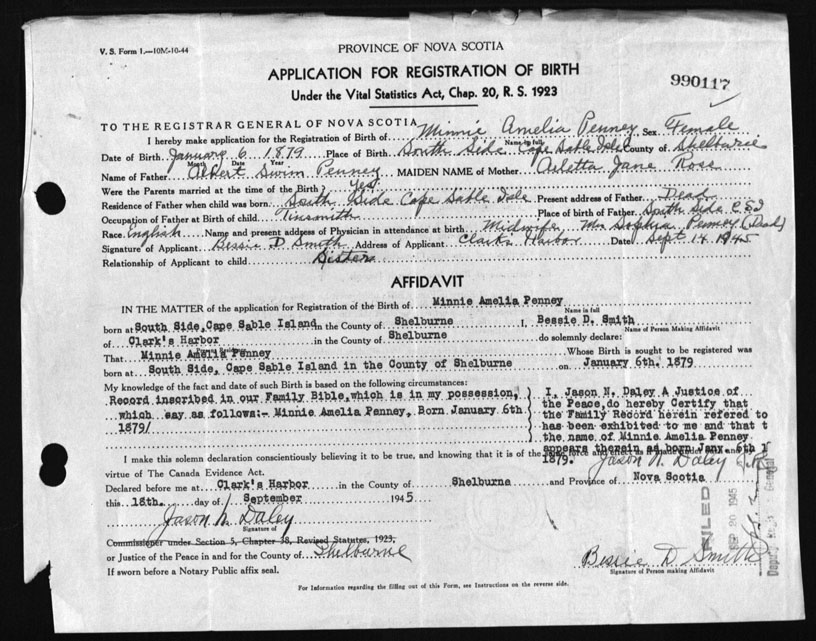 V. S. Form 1.—10M-10-44
PROVINCE OF NOVA SCOTIA
APPLICATION FOR REGISTRATION OF BIRTH
Under the Vital Statistics Act, Chap. 20, R. S. 1923
990117
TO THE REGISTRAR GENERAL OF NOVA SCOTIA
I hereby make application for the Registration of Birth of Minnie Amelia Penney Sex Female
Name in full
Date of Birth January 6 1879 Place of Birth South Side Cape Sable Isle County of Shelburne
Month Date Year
Name of Father Albert Swim Penney MAIDEN NAME of Mother Arletta Jane Ross
Were the Parents married at the time of the Birth? yes
Residence of Father when child was born South Side Cape Sable Isle Present address of Father Dead
Occupation of Father at Birth of child Tinsmith Place of Birth of Father South Side C S I
Race English Name and present address of Physician in attendance at birth Midwife, Mrs Sophia Penney (Dead)
Signature of Applicant Bessie D Smith Address of Applicant Clarks Harbor Date Sept 14 1945
Relationship of Applicant to child Sister
AFFIDAVIT
IN THE MATTER of the application for Registration of the Birth of Minnie Amelia Penney
Name in full
born at South Side, Cape Sable Island in the County of Shelburne I, Bessie D. Smith
Name of Person Making Affidavit
of Clark's Harbor in the County of Shelburne do solemnly declare:
That Minnie Amelia Penney Whose Birth is sought to be registered was
born at South Side, Cape Sable Island in the County of Shelburne on January 6th. 1879
My knowledge of the fact and date of such Birth is based on the following circumstances:
Record inscribed in our Family Bible, which is in my possession,
which say as follows:- Minnie Amelia Penney, Born January 6th
1879/
I, Jason N. Daley A Justice of
the Peace, do hereby Certify that
the Family Record herein refered to
has been exhibited to me and that t
the name of Minnie Amelia Penney
appears therein as born Jany. 6th
1879. Jason N. Daley J.P.
I make this solemn declaration conscientiously believing it to be true, and knowing that it is of the force and effect as if made under oath and by
virtue of The Canada Evidence Act.
Declared before me at Clark's Harbor in the County of Shelburne and Province of Nova Scotia
this 18th. day of September 1945
Jason N. Daley
Signature of
Commissioner under Section 5, Chapter 38, Revised Statutes, 1923,
or Justice of the Peace in and for the County of Shelburne
If sworn before a Notary Public affix seal.
FILED
SEP 20 1945
Bessie D. Smith
Signature of Person making Affidavit
For Information regarding the filling out of this Form, see Instructions on the reverse side.